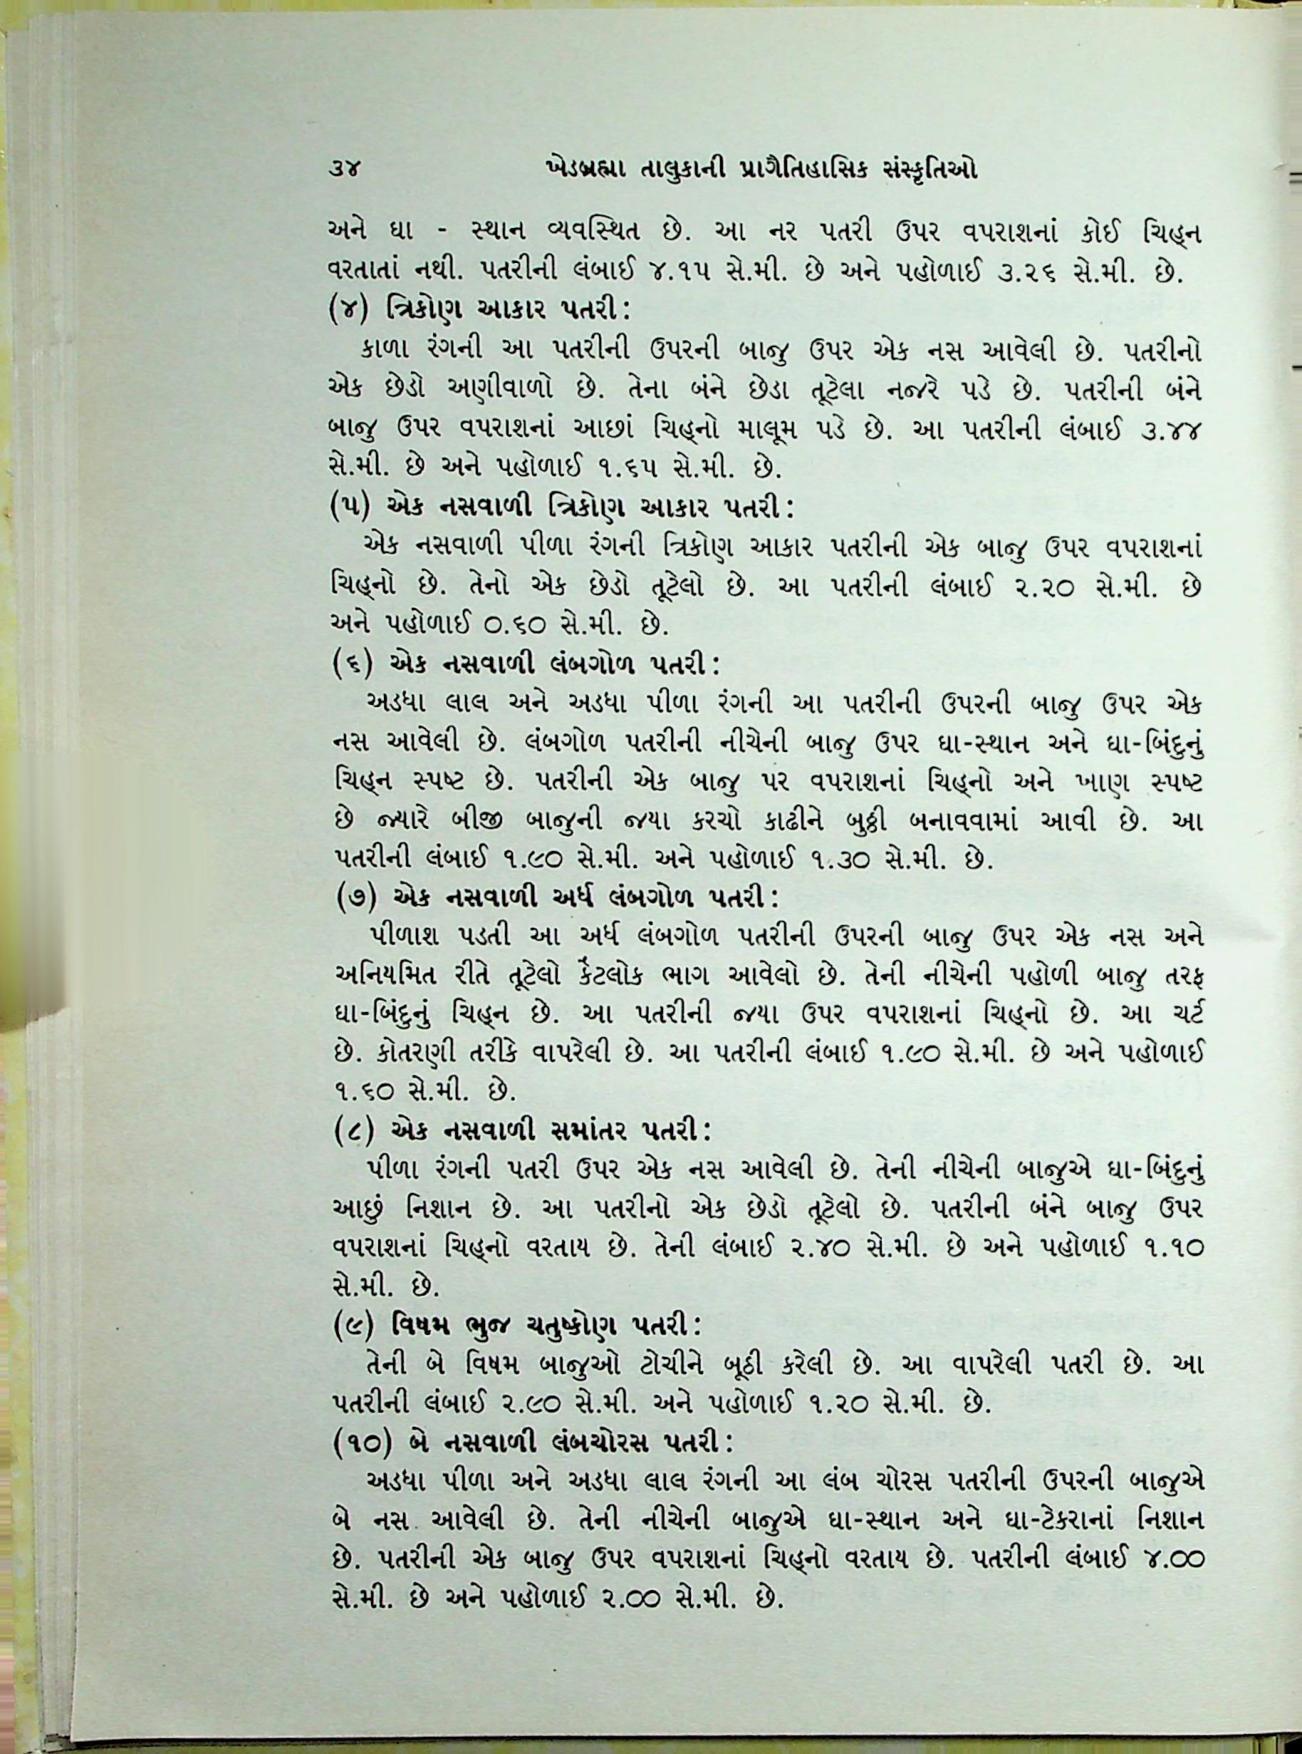 ૩૪ ખેડબ્રહ્મા તાલુકાની પ્રાગૈતિહાસિક સંસ્કૃતિઓ
અને ઘા - સ્થાન વ્યવસ્થિત છે. આ નર પતરી ઉપર વપરાશનાં કોઈ ચિહ્ન
વરતાતાં નથી. પતરીની લંબાઈ ૪.૧૫ સે.મી. છે અને પહોળાઈ ૩.૨૬ સે.મી. છે.
(૪) ત્રિકોણ આકાર પતરી:
કાળા રંગની આ પતરીની ઉપરની બાજુ ઉપર એક નસ આવેલી છે. પતરીનો
એક છેડો અણીવાળો છે. તેના બંને છેડા તૂટેલા નજરે પડે છે. પતરીની બંને
બાજુ ઉપર વપરાશનાં આછાં ચિહ્નો માલૂમ પડે છે. આ પતરીની લંબાઈ ૩.૪૪
સે.મી. છે અને પહોળાઈ ૧.૬૫ સે.મી. છે.
(૫) એક નસવાળી ત્રિકોણ આકાર પતરી:
એક નસવાળી પીળા રંગની ત્રિકોણ આકાર પતરીની એક બાજુ ઉપર વપરાશનાં
ચિહ્નો છે. તેનો એક છેડો તૂટેલો છે. આ પતરીની લંબાઈ ૨.૨૦ સે.મી. છે
અને પહોળાઈ ૦.૬૦ સે.મી. છે.
(૬) એક નસવાળી લંબગોળ પતરી:
અડધા લાલ અને અડધા પીળા રંગની આ પતરીની ઉપરની બાજુ ઉપર એક
નસ આવેલી છે. લંબગોળ પતરીની નીચેની બાજુ ઉપર ઘા-સ્થાન અને ઘા-બિંદુનું
ચિહ્ન સ્પષ્ટ છે. પતરીની એક બાજુ પર વપરાશનાં ચિહ્નો અને ખાણ સ્પષ્ટ
છે જ્યારે બીજી બાજુની જયા કરચો કાઢીને બુઠ્ઠી બનાવવામાં આવી છે. આ
પતરીની લંબાઈ ૧.૯૦ સે.મી. અને પહોળાઈ ૧.૩૦ સે.મી. છે.
(૭) એક નસવાળી અર્ધ લંબગોળ પતરી:
પીળાશ પડતી આ અર્ધ લંબગોળ પતરીની ઉપરની બાજુ ઉપર એક નસ અને
અનિયમિત રીતે તૂટેલો કેટલોક ભાગ આવેલો છે. તેની નીચેની પહોળી બાજુ તરફ
ઘા-બિંદુનું ચિહ્ન છે. આ પતરીની જયા ઉપર વપરાશનાં ચિહ્નો છે. આ ચર્ટ
છે. કોતરણી તરીકે વાપરેલી છે. આ પતરીની લંબાઈ ૧.૯૦ સે.મી. છે અને પહોળાઈ
૧.૬૦ સે.મી. છે.
(૮) એક નસવાળી સમાંતર પતરી:
પીળા રંગની પતરી ઉપર એક નસ આવેલી છે. તેની નીચેની બાજુએ ઘા-બિંદુનું
આછું નિશાન છે. આ પતરીનો એક છેડો તૂટેલો છે. પતરીની બંને બાજુ ઉપર
વપરાશનાં ચિહ્નો વરતાય છે. તેની લંબાઈ ૨.૪૦ સે.મી. છે અને પહોળાઈ ૧.૧૦
સે.મી. છે.
(૯) વિષમ ભુજ ચતુષ્કોણ પતરી:
તેની બે વિષમ બાજુઓ ટોચીને બૂઠી કરેલી છે. આ વાપરેલી પતરી છે. આ
પતરીની લંબાઈ ૨.૯૦ સે.મી. અને પહોળાઈ ૧.૨૦ સે.મી. છે.
(૧૦) બે નસવાળી લંબચોરસ પતરી:
અડધા પીળા અને અડધા લાલ રંગની આ લંબ ચોરસ પતરીની ઉપરની બાજુએ
બે નસ આવેલી છે. તેની નીચેની બાજુએ ઘા-સ્થાન અને ઘા-ટેકરાનાં નિશાન
છે. પતરીની એક બાજુ ઉપર વપરાશનાં ચિહ્નો વરતાય છે. પતરીની લંબાઈ ૪.૦૦
સે.મી. છે અને પહોળાઈ ૨.૦૦ સે.મી. છે.